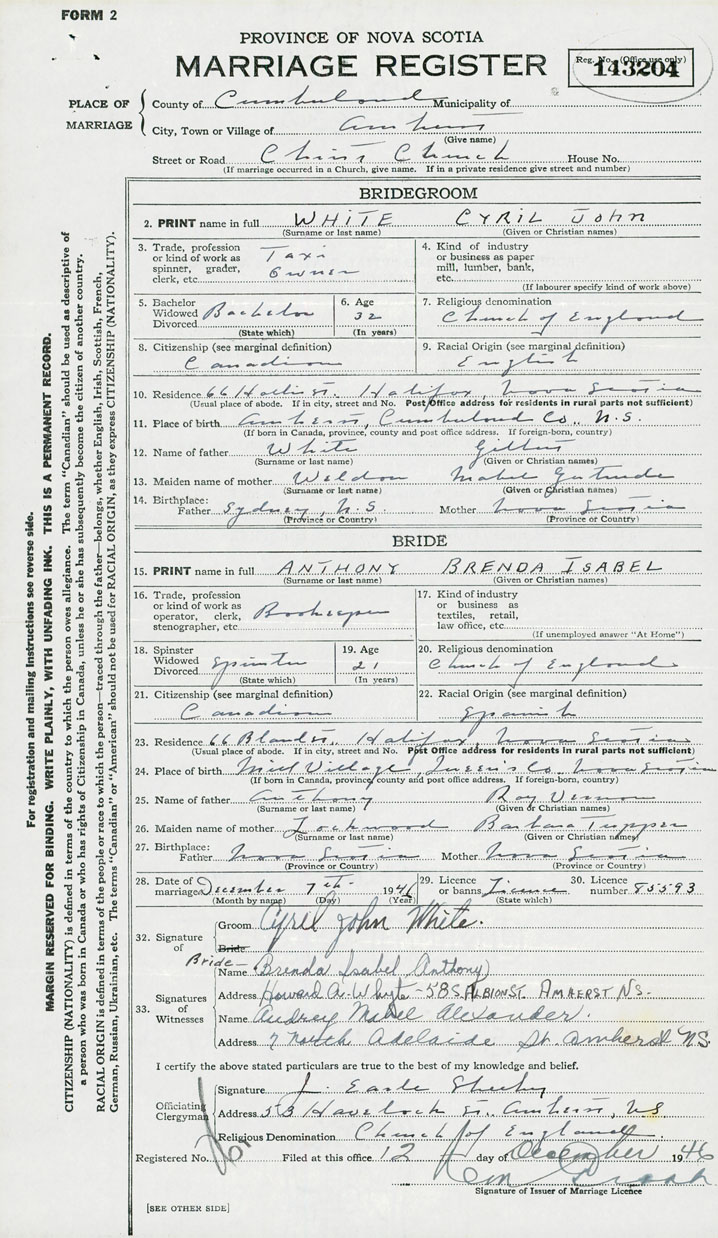 FORM 2
PROVINCE OF NOVA SCOTIA
MARRIAGE REGISTER
Reg. No. (Office use only)
143204
PLACE OF MARRIAGE
County of Cumberland Municipality of
City, Town or Village of Amherst
(Give name)
Street or Road Christ Church House No.
(If marriage occurred in a Church, give name. If in a private residence give street and number)
BRIDEGROOM
2. PRINT name in full WHITE CYRIL JOHN
(Surname or last name) (Given or Christian names)
3. Trade, profession or kind of work as spinner, grader, clerk, etc. Taxi Owner
4. Kind of industry or business as paper mill, lumber, bank, etc.
(If labourer specify kind of work above)
5. Bachelor Widowed Divorced Bachelor
(State which)
6. Age 32
(In years)
7. Religious denomination
Church of England
8. Citizenship (see marginal definition)
Canadian
9. Racial Origin (see marginal definition)
English
10. Residence 66 Hollis St., Halifax, Nova Scotia
(Usual place of abode. If in city, street and No. Post Office address for residents in rural parts not sufficient)
11. Place of birth Amherst, Cumberland Co., N.S.
(If born in Canada, province, county and post office address. If foreign-born, country)
12. Name of father White Gilbert
(Surname or last name) (Given or Christian names)
13. Maiden name of mother Weldon Mabel Gertrude
(Surname or last name) (Given or Christian names)
14. Birthplace:
Father Sydney, N.S. Mother Nova Scotia
(Province or Country) (Province or Country)
BRIDE
15. PRINT name in full ANTHONY BRENDA ISABEL
(Surname or last name) (Given or Christian names)
16. Trade, profession or kind of work as operator, clerk, stenographer, etc. Bookkeeper
17. Kind of industry or business as textiles, retail, law office, etc.
(If unemployed answer "At Home")
18. Spinster Widowed Divorced Spinster
(State which)
19. Age 21
(In years)
20. Religious denomination
Church of England
21. Citizenship (see marginal definition)
Canadian
22. Racial Origin (see marginal definition)
Spanish
23. Residence 66 Bland St., Halifax, Nova Scotia
(Usual place of abode. If in city, street and No. Post Office address for residents in rural parts not sufficient)
24. Place of birth Mill Village, Queen's Co., Nova Scotia
(If born in Canada, province, county and post office address. If foreign-born, country)
25. Name of father Anthony Roy Vernon
(Surname or last name) (Given or Christian names)
26. Maiden name of mother Lockwood Barbara Tupper
(Surname or last name) (Given or Christian names)
27. Birthplace:
Father Nova Scotia Mother Nova Scotia
(Province or Country) (Province or Country)
28. Date of marriage December 7th 1946
(Month by name) (Day) (Year)
29. Licence or banns Licence
(State which)
30. Licence number 85593
32. Signature of
Groom Cyril John White.
Bride
Bride- Name Brenda Isabel Anthony
33. Signatures of Witnesses
Address Howard A. Whyte - 58 S. ALBION ST. AMHERST N.S.
Name Audrey Mabel Alexander.
Address 7 North Adelaide St. Amherst N.S.
I certify the above stated particulars are true to the best of my knowledge and belief.
Officiating Clergyman
Signature J. Earle
Address 53 Havelock St., Amherst, N.S.
Religious Denomination Church of England.
Registered No. Filed at this office 12 day of December 1946
Signature of Issuer of Marriage Licence
[SEE OTHER SIDE]
For registration and mailing instructions see reverse side.
MARGIN RESERVED FOR BINDING. WRITE PLAINLY, WITH UNFADING INK. THIS IS A PERMANENT RECORD.
CITIZENSHIP (NATIONALITY) is defined in terms of the country to which the person owes allegiance. The term "Canadian" should be used as descriptive of
a person who was born in Canada or who has rights of Citizenship in Canada, unless he or she has subsequently become the citizen of another country.
RACIAL ORIGIN is defined in terms of the people or race to which the person—traced through the father—belongs, whether English, Irish, Scottish, French,
German, Russian, Ukrainian, etc. The terms "Canadian" or "American" should not be used for RACIAL ORIGIN, as they express CITIZENSHIP (NATIONALITY).